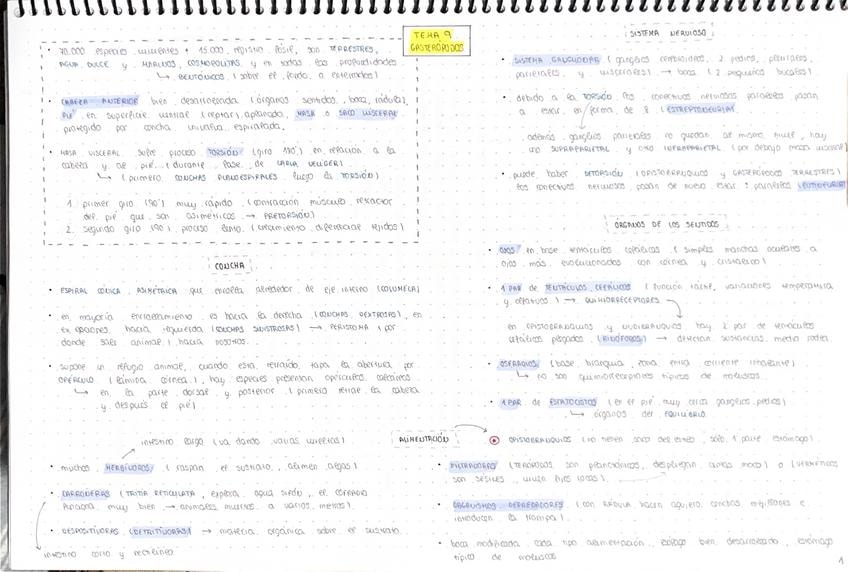 TEMA 9
GASTERÓPODOS
70.000 especies vivientes + 15.000 registro fósil, son TERRESTRES,
AGUA DULCE y MARINOS, COSMOPOLITAS y en todas las profundidades
↳ BENTÓNICOS (sobre el fondo o enterrados)
CABEZA ANTERIOR bien desarrollada (órganos sentidos, boca, rádula),
PIE en superficie ventral (reptar), aplanado, MASA o SACO VISCERAL
protegido por concha univalva espiralada.
MASA VISCERAL sufre proceso TORSIÓN (giro 180°) en relación a la
cabeza y al pie (durante fase de LARVA VELIGER)
↳ (primero CONCHAS PLANOESPIRALES luego la TORSIÓN)
1. primer giro (90°) muy rápido (contracción músculo retractor
del pie que son asimétricos → PRETORSIÓN)
2. segundo giro (90°) proceso lento (crecimiento diferencial tejidos)
CONCHA
ESPIRAL CÓNICA, ASIMÉTRICA que enrolla alrededor de eje interno (COLUMELA)
en mayoría enrollamiento es hacia la derecha (CONCHAS DEXTROSAS), en
hacia izquierda (CONCHAS SINISTROSAS) → PERISTOMA (por
donde sale animal) hacia nosotros.
supone un refugio animal, cuando está retraído, tapa la abertura por
OPÉRCULO (lámina córnea), hay especies presentan opérculos calcáreos
↳ en la parte dorsal y posterior (primero retrae la cabeza
y después el pie)
ALIMENTACIÓN
intestino largo (va dando varias vueltas)
muchos HERBÍVOROS (raspan el sustrato, alimen algas)
CARROÑEROS (TRITIA RETICULATA, explora agua sifón, el OSFRADIO
funciona muy bien → animales muertos a varios metros)
DESPOSITÍVOROS (DETRITÍVOROS) → materia orgánica sobre el sustrato
intestino corto y rectilíneo
SISTEMA NERVIOSO
SISTEMA GANGLIONAR (ganglios cerebroideos, 2 pedios, pleurales,
parietales y viscerales) → boca (2 pequeños bucales)
debido a la TORSIÓN los conectivos nerviosos paralelos pasan
a estar en forma de 8 (ESTREPTONEURIA)
además ganglios parietales no quedan al mismo nivel, hay
uno SUPRAPARIETAL y otro INFRAPARIETAL (por debajo masa visceral)
puede haber DETORSIÓN (OPISTOBRANQUIOS y GASTERÓPODOS TERRESTRES)
los conectivos nerviosos pasan de nuevo estar paralelos (EUTINEURIA)
ÓRGANOS DE LOS SENTIDOS
OJOS en base tentáculos cefálicos (simples manchas oculares a
ojos más evolucionados con córnea y cristalino)
1 PAR de TENTÁCULOS CEFÁLICOS (función táctil, variaciones temperatura
y olfativos) → QUIMIORRECEPTORES
en OPISTOBRANQUIOS y NUDIBRANQUIOS hay 2 par de tentáculos
cefálicos plegados (RINÓFOROS) → detectan sustancias medio rodea.
OSFRADIOS (base branquia, zona entra corriente inhalante)
↳ no son quimiorreceptores típicos de moluscos
1 PAR de ESTATOCISTOS (en el pie, muy cerca ganglios pedios)
↳ órganos del EQUILIBRIO
OPISTOBRANQUIOS (no tienen saco del estilo, sólo 1 parte estómago)
FILTRADORES (TERÓPODOS son planctónicos, despliegan mantos moco) o (VERMÉTIDOS
son sésiles, viven fijos rocas)
ORGANISMOS DEPREDADORES (con RÁDULA hacen agujero conchas mejillones e
introducen la trompa)
boca modificada cada tipo alimentación, esófago bien desarrollado, estómago
típico de moluscos
1